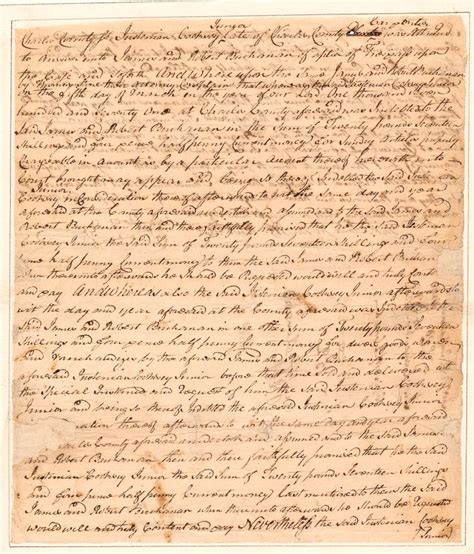 Junior
Charles County Ss Justenian Cooksey Late of Charles County was attached
to answer unto James and Robert Buchanan of a plea of Trespass upon
the Case and so forth And Whereupon the said James and Robert Buchanan
by Thomas Stone their Attorney complain that whereas the said Justenian Cooksey Junior
on the fifth day of March in the year of our Lord One thousand Seven
hundred and seventy One at Charles County aforesaid was indebted to the
said James and Robert Buchanan in the Sum of Twenty pounds Seventeen
Shillings and four pence half penny Current money for Sundry Articles properly
Chargeable in Account as by a particular Account thereof herewith into
Court brought may appear and being so thereof Indebted the said Justenian
Cooksey in Consideration thereof afterwards to wit the same day and year
aforesaid at the County aforesaid undertook and assumed to the said James and
Robert Buchanan then and there faithfully promised that he the said Justenian
Cooksey Junior the said Sum of Twenty pounds Seventeen Shillings and four
pence half penny Current money to them the said James and Robert Buchanan
when thereunto afterwards he should be Required would well and truly Content
and pay And Whereas also the said Justenian Cooksey Junior afterwards to
wit the day and year aforesaid at the County aforesaid was Indebted to the
said James and Robert Buchanan in one other Sum of Twenty pounds Seventeen
Shillings and four pence half penny Current money for divers goods wares
and Merchandizes by the aforesaid James and Robert Buchanan to the
aforesaid Justenian Cooksey Junior before that time Sold and delivered at
the Special Instance and Request of him the said Justenian Cooksey
Junior and being so thereof Indebted the aforesaid Justenian Cooksey Junior
ation thereof afterwards to wit the same day and year aforesaid
at the County aforesaid undertook and assumed and to the said James
and Robert Buchanan then and there faithfully promised that he the said
Justenian Cooksey Junior the said Sum of Twenty pounds Seventeen Shillings
and four pence half penny Current money Last mentioned to them the said
James and Robert Buchanan when thereunto afterwards he should be Required
would well and truly Content and pay Nevertheless the said Justenian Cooksey
Junior